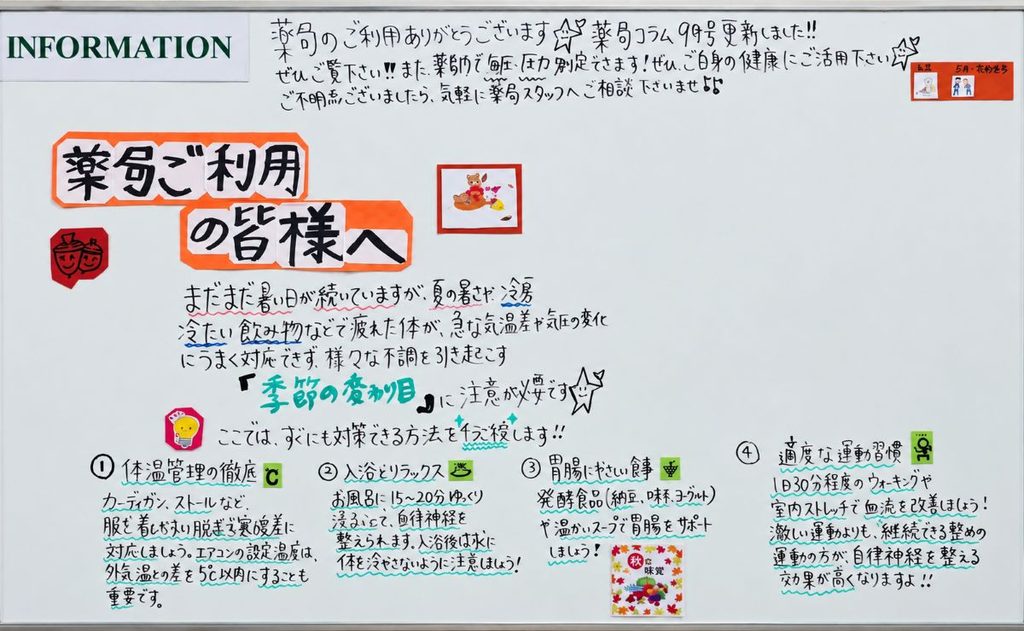 INFORMATION
薬局のご利用ありがとうございます 薬局コラム9月号更新しました!!
ぜひご覧下さい!! また、薬局内で血圧測定できます!ぜひ、ご自身の健康にご活用下さい
ご不明点ございましたら、気軽に薬局スタッフへご相談下さいませ♪
薬局ご利用
の皆様へ
まだまだ暑い日が続いていますが、夏の暑さや 冷房
冷たい飲み物などで疲れた体が、急な気温差や気圧の変化
にうまく対応できず、様々な不調を引き起こす
『季節の変わり目』に注意が必要です
ここでは、すぐにも対策できる方法を伝授します!!
① 体温管理の徹底 ℃
カーディガン、ストールなど、
服を着しやすい脱ぎ寒暖差に
対応しましょう。エアコンの設定温度は、
外気温との差を5℃以内にすることも
重要です。
② 入浴とリラックス
お風呂に15~20分ゆっくり
浸ることで、自律神経を
整えられます。入浴後は水に
体を冷やさないように注意しましょう!
③ 胃腸にやさしい食事
発酵食品(納豆、味噌、ヨーグルト)
や温かいスープで胃腸をサポート
しましょう!
秋の
味覚
④ 適度な運動習慣
1日30分程度のウォーキングや
室内ストレッチで血流を改善しましょう!
激しい運動よりも、継続できる軽めの
運動の方が、自律神経を整える
効果が高くなりますよ!!